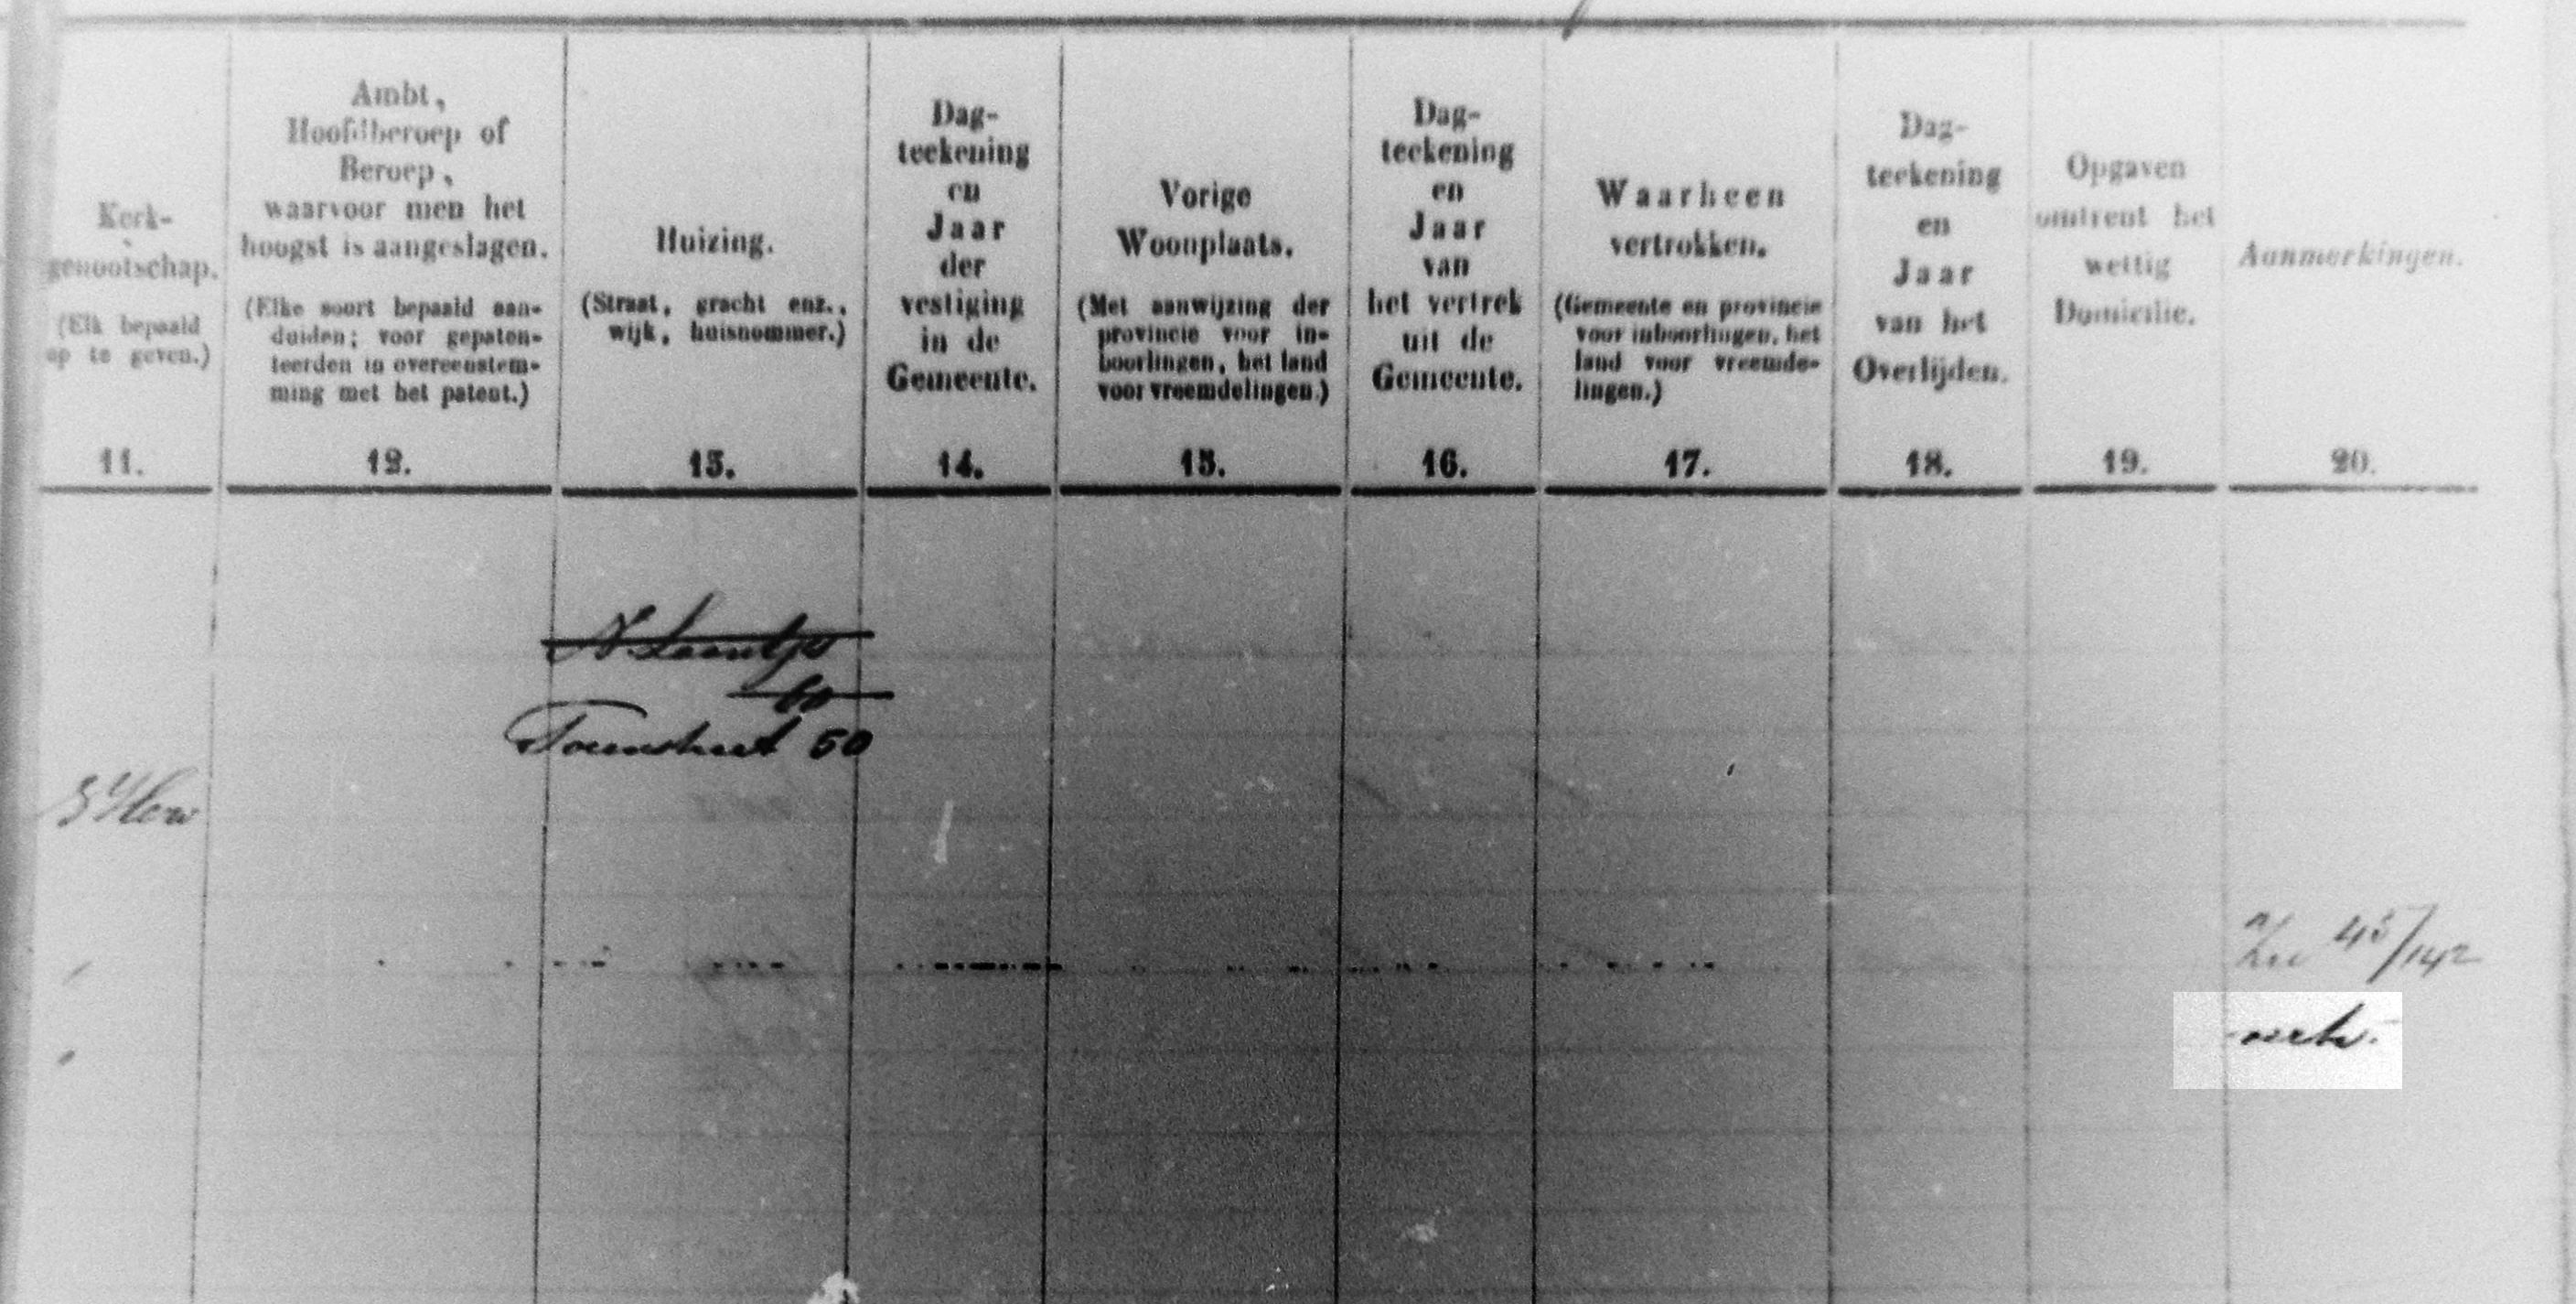 Kerk-
genootschap.
(Elk bepaald
op te geven.)
11.
Ambt,
Hoofdberoep of
Beroep,
waarvoor men het
hoogst is aangeslagen.
(Elke soort bepaald aan-
duiden; voor gepaten-
teerden in overeenstem-
ming met het patent.)
12.
Huizing.
(Straat, gracht enz.,
wijk, huisnommer.)
13.
Dag-
teekening
en
Jaar
der
vestiging
in de
Gemeente.
14.
Vorige
Woonplaats.
(Met aanwijzing der
provincie voor in-
boorlingen, het land
voor vreemdelingen.)
15.
Dag-
teekening
en
Jaar
van
het vertrek
uit de
Gemeente.
16.
Waarheen
vertrokken.
(Gemeente en provincie
voor inboorlingen, het
land voor vreemde-
lingen.)
17.
Dag-
teekening
en
Jaar
van het
Overlijden.
18.
Opgaven
omtrent het
wettig
Domicilie.
19.
Aanmerkingen.
20.
60
50
Herv
45/142